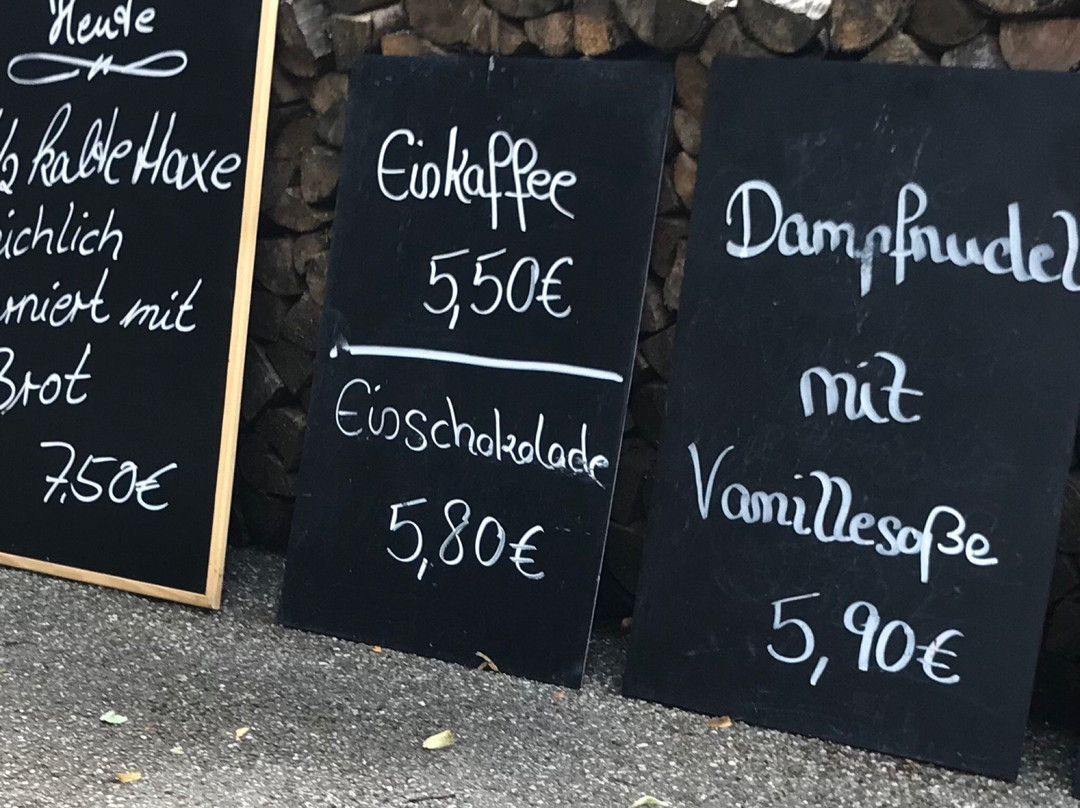 Heute
1/2 kalte Haxe
eichlich
rniert mit
Brot
7,50€
Eiskaffee
5,50€
Eisschokolade
5,80€
Dampfnudel
mit
Vanillesoße
5,90€